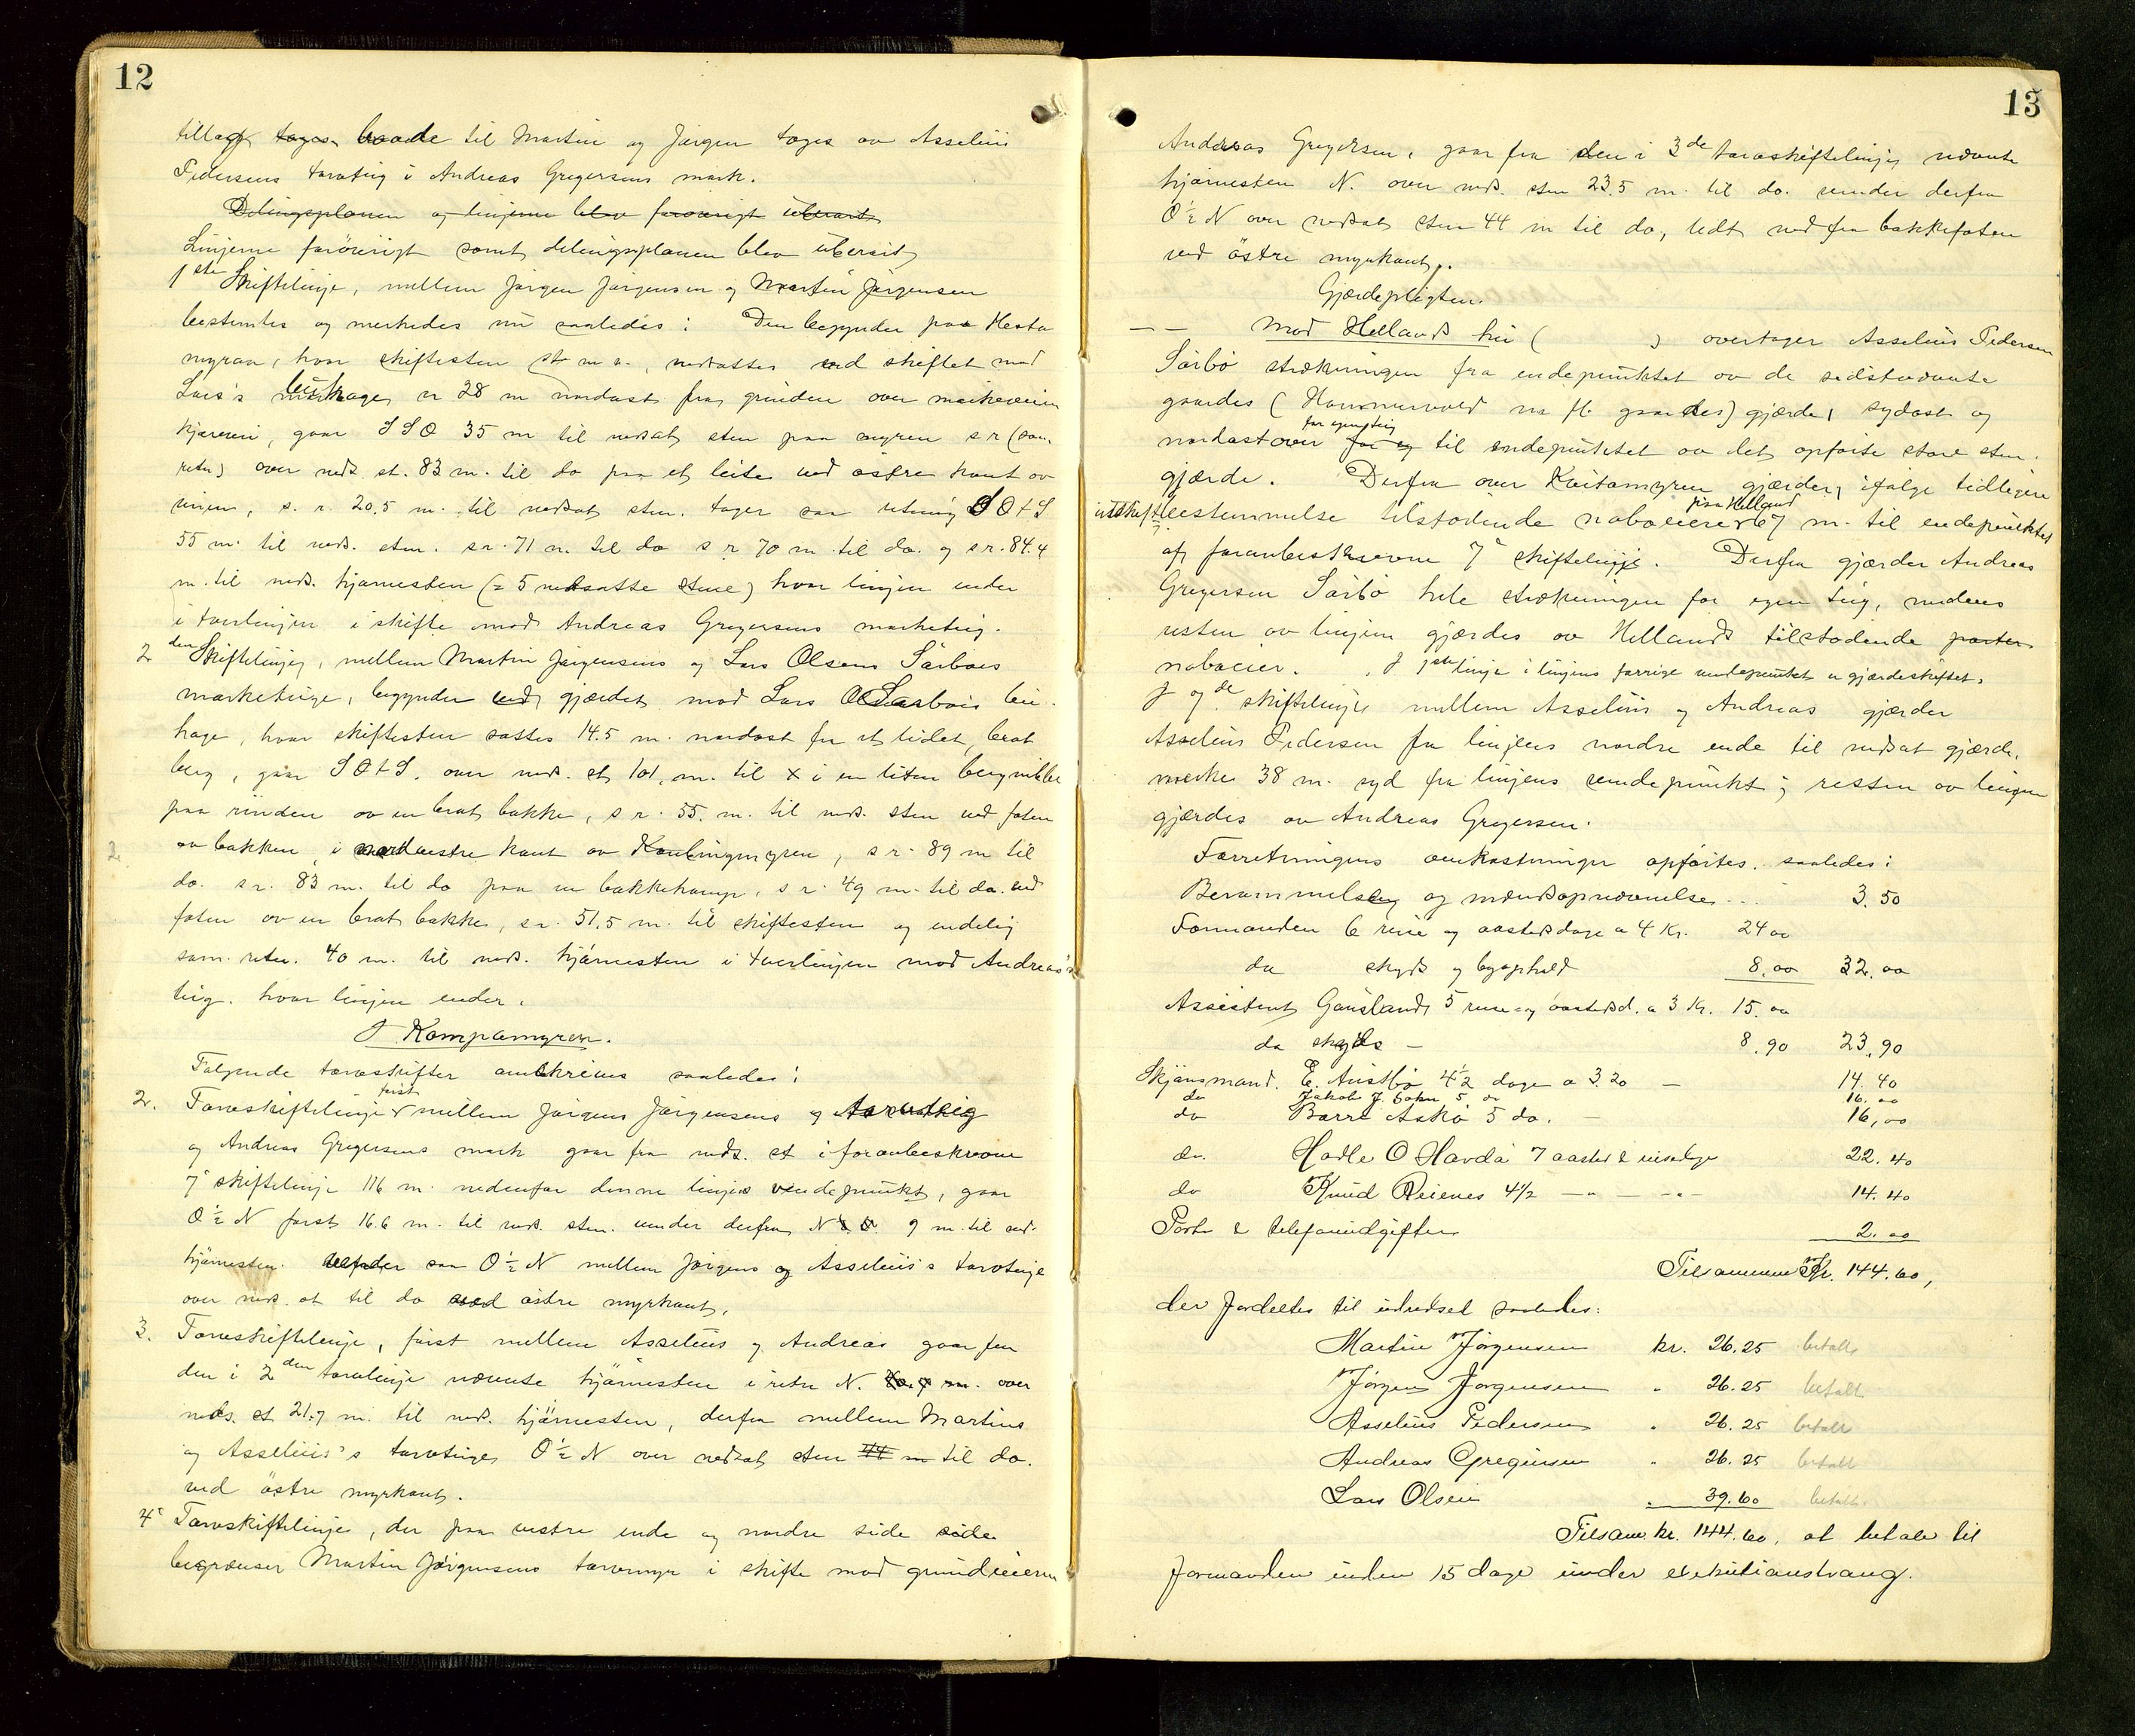 12
tillagt tages baade til Martin og Jørgen tages av Asselius
Pedersens torvteig i Andreas Gregersens mark.
Delingsplanen og linjerne blev forövrigt
Linjerne forövrigt samt delingsplanen blev
1ste Skiftelinje, mellem Jørgen Jørgensen og Martin Jørgensen
bestemtes og merkedes nu saaledes: Den begynder paa Hesta
myraa, hvor skiftesten nedsattes ved skiftet mod
Lars's hage 28 m nordost fra grinden over markeveien
gaar SSO 35 m til nedsat sten paa myren s r (sam.
retn) over neds. st. 83 m. til do paa et leite ved östre kant av
s. r. 20.5 m. til nedsat sten. tager saa retning SOtS
55 m. til neds. sten. s r. 71 m. til do s r 70 m til do. og s r. 84.4
m. til neds. hjørnesten (= 5 nedsatte stene) hvor linjen ender
i tverlinjen i skifte mod Andreas Gregersens marketeig.
2den Skiftelinje, mellem Martin Jørgensens og Lars Olsens Sörbøs
marketeige, begynder ved gjærdet mod Lars O Sørbøs
hage, hvor skiftesten sattes 14.5 m. nordost fra et lidet brat
berg, gaar SOtS. over neds. st. 101 m. til x i en liten bergnibbe
paa rinden av en brat bakke, s r. 55. m. til neds. sten ved foten
av bakken i nordvestre kant av s r. 89 m til
do. s r. 83 m. til do paa en bakkekamp, s r. 49 m. til do. ved
foten av en brat bakke, s r. 51.5 m. til skiftesten og endelig
sam. retn. 40 m. til neds. hjørnesten i tverlinjen mod Andreas's
teig. hvor linjen ender.
I Kompamyren.
Følgende torveskifter omskrives saaledes:
2. Torveskiftelinje først mellem Jørgen Jørgensens og
og Andreas Gregersens mark gaar fra neds. st i foranbeskrevne
7' skiftelinje 116 m. nedenfor denne linjes vendepunkt, gaar
O½N først 16.6 m. til neds. sten. vender derfra 9 m. til neds.
hjørnesten. vender saa O½N mellem Jørgens og Asselius's torvteige
over neds. st til do ved østre myrkant.
3. Torveskiftelinje, først mellem Asselius og Andreas gaar fra
den i 2den torvelinje nævnte hjørnesten i retn N. over
neds. st 21.7 m. til neds. hjørnesten, derfra mellem Martins
og Asselius's torvteiger O½N over nedsat sten 44 m til do.
ved østre myrkant.
4' Torveskiftelinje, der paa vestre ende og nordre side side
begrænser Martin Jørgensens torvemyr i skifte mod grundeieren
13
Andreas Gregersen, gaar fra den i 3de torveskiftelinje nævnte
hjørnesten N. over neds. sten 23.5 m. til do. vender derfra
O½N over nedsat sten 44 m til do, lidt ned fra bakkefoten
ved östre myrkant.
Gjærdepligten.
— — Mod Hellands ( ) overtager Asselius Pedersen
Sörbö strækningen fra endepunktet av de sidstnævnte
gaardes (Hammervold m fl gaardes) gjærde, sydost og
nordost over for egen teig til endepunktet av det opførte store sten-
gjærde. Derfra over Kvitamyren gjærder, ifølge tidligere
utskift. bestemmelse tilstødende naboeiere paa Helland 67 m. til endepunktet
af foranbeskrevne 7' skiftelinje. Derfra gjærder Andreas
Gregersen Sörbö hele strækningen for egen teig, medens
resten av linjen gjærdes av Hellands tilstødende parter
naboeier. I 1ste linje i linjens forrige vendepunktet er gjærdeskiftet.
I 7de skiftelinje mellem Asselius og Andreas gjærder
Asselius Pedersen fra linjens nordre ende til nedsat gjærde-
merke 38 m. syd fra linjens vendepunkt; resten av linjen
gjærdes av Andreas Gregersen.
Forretningens omkostninger opførtes saaledes:
Berammelse og mændsopnævnelse ... 3.50
Formanden 6 reise og aastedsdage a 4 Kr. 24 00
do skyds og ophold 8.00 32.00
Assistent Gausland 5 reise og aastedsd. a 3 Kr. 15.00
do skyds — 8.90 23.90
Skjønsmand. E. Austbö 4½ dage a 3.20 — 14.40
do Jakob J. 5 do 16.00
do Børre Askö 5 do. — 16,00
do. Hadle O Havda 7 aasted & reisedage 22.40
do Knud Reienes 4½ — " — — " — 14.40
Porto & telefonudgifter 2.00
Tilsammen Kr. 144.60,
der fordeltes til udredsel saaledes:
Martin Jörgensen kr. 26.25 betalt
Jörgen Jørgensen " 26.25 betalt
Asselius Pedersen " 26.25 betalt
Andreas Gregersen " 26.25 betalt
Lars Olsen " 39.60 betalt
Tilsam. kr. 144.60, at betale til
formanden inden 15 dage under exekutionstvang.